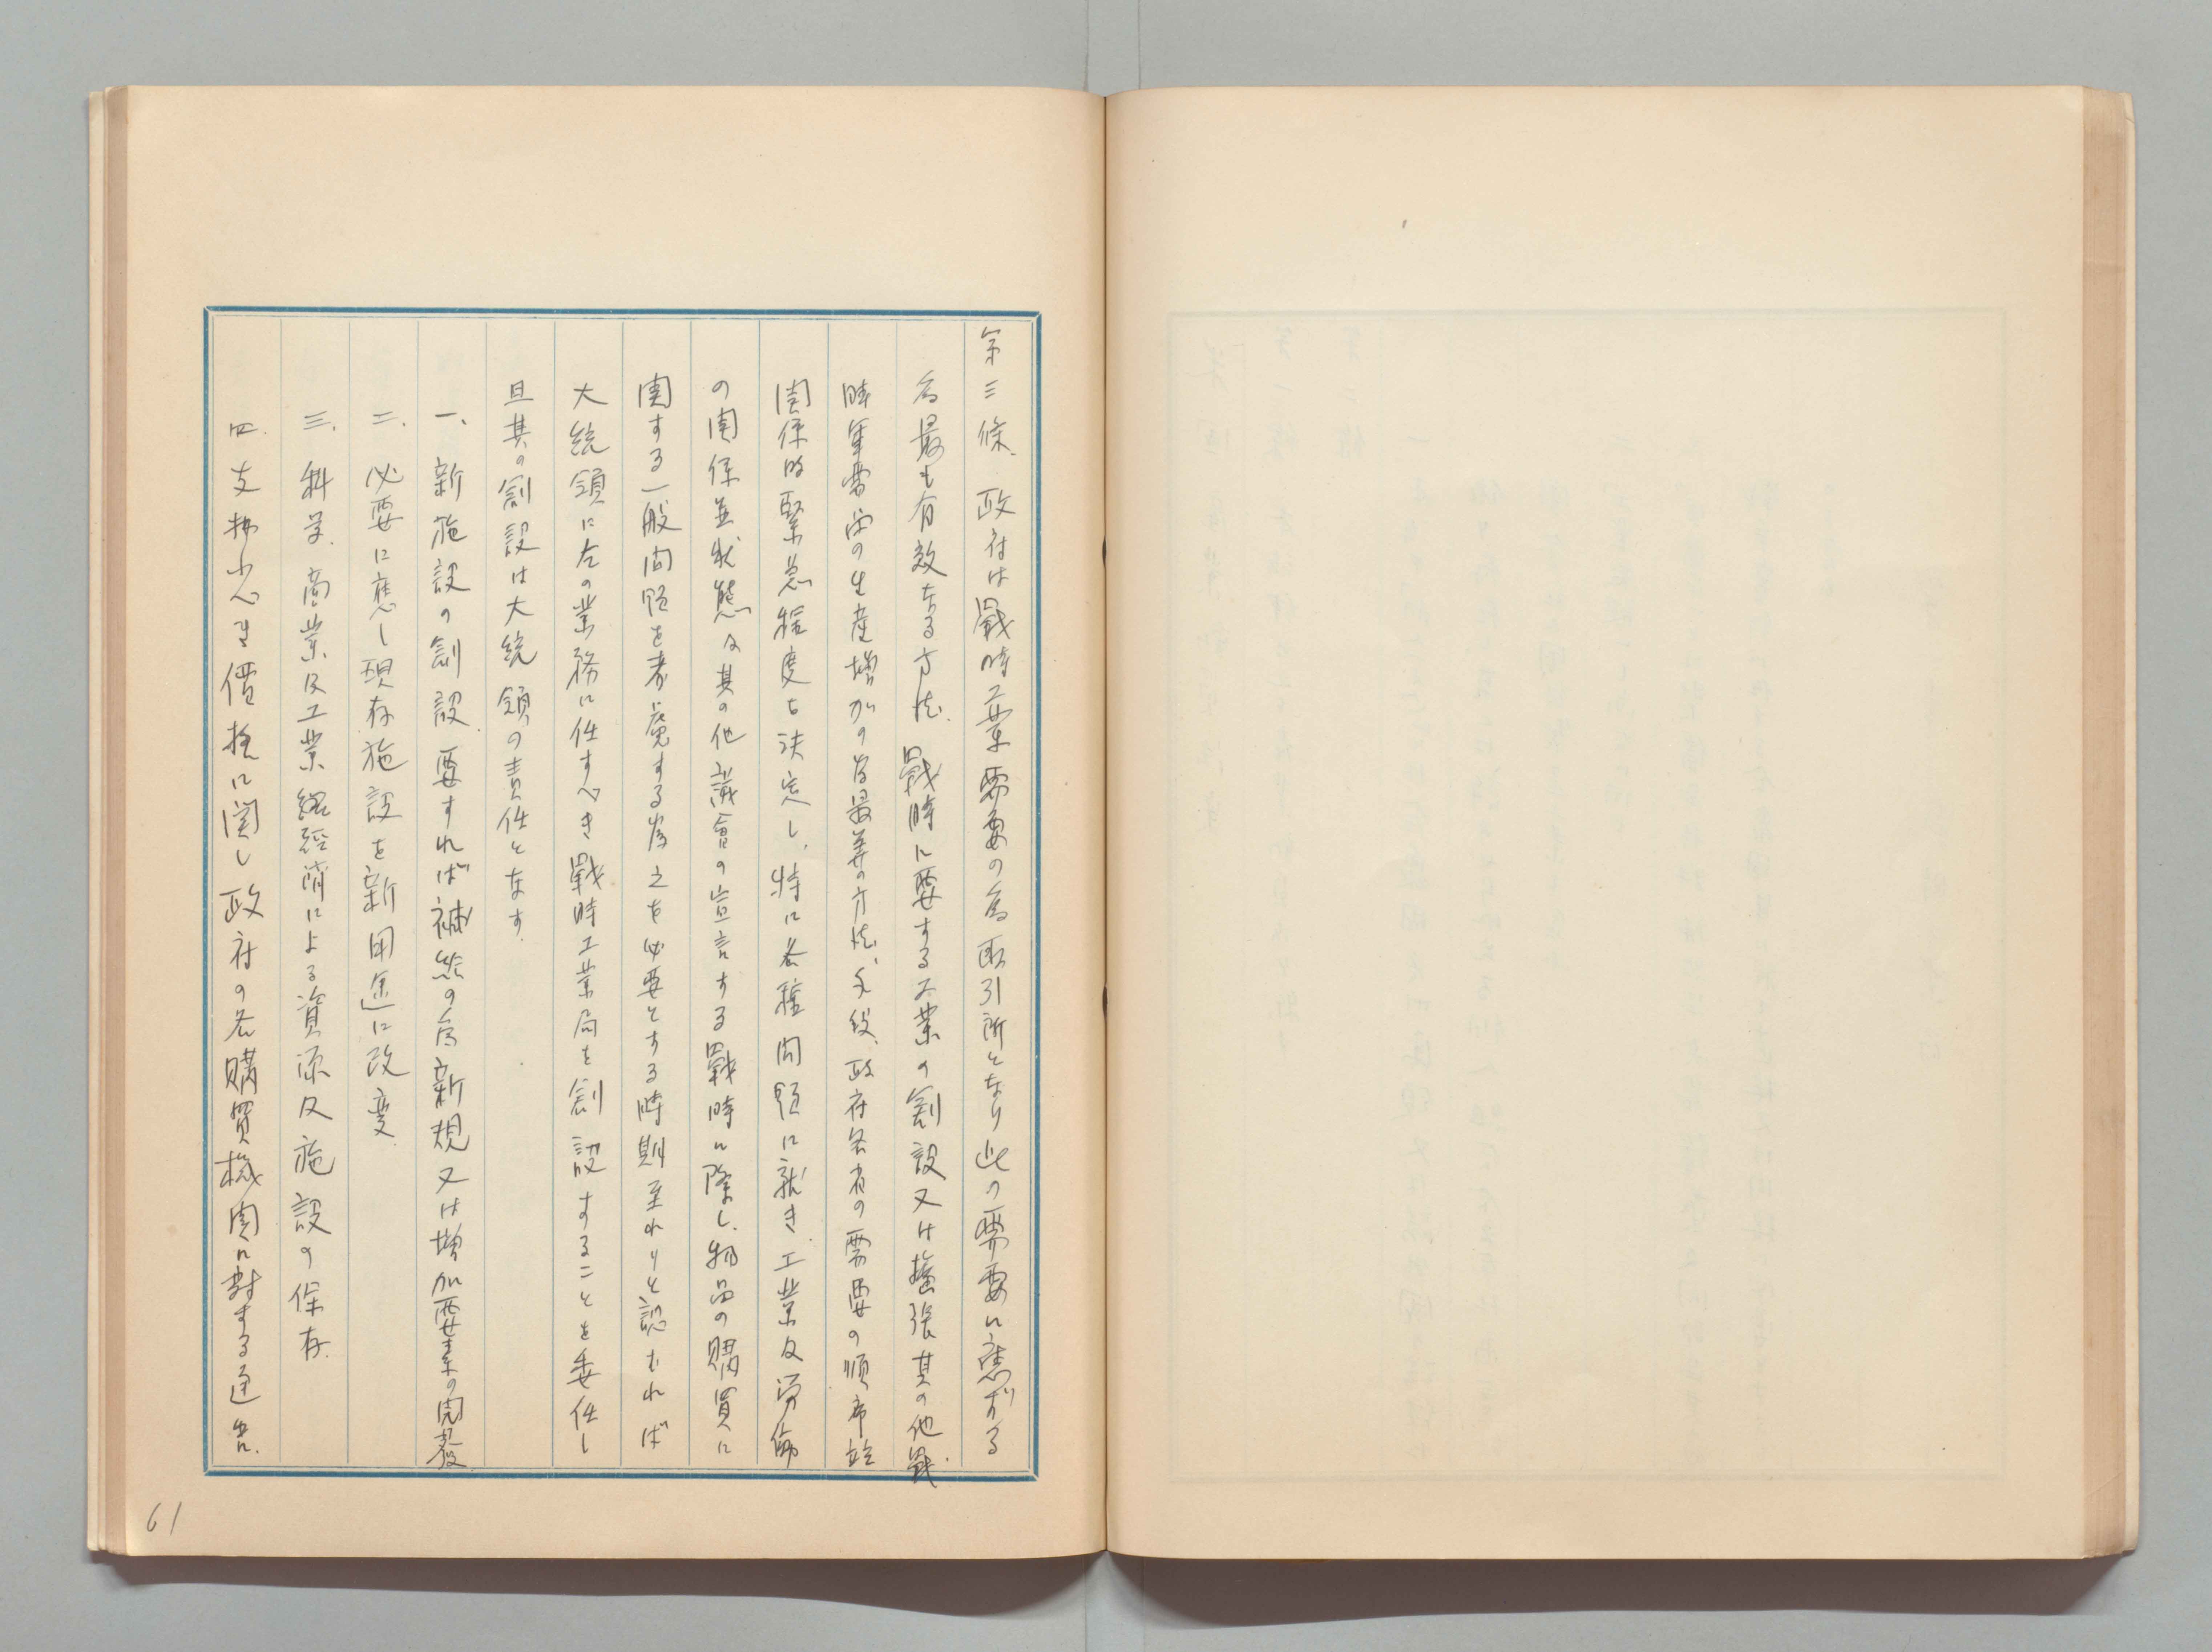 第三條 政府は戰時工業需要の為取引所となり此の需要に應ずる
為最も有效なる方法、戰時に要する工業の創設又は擴張其の他戰
時軍需品の生産増加の為最善の方法、手段、政府各省の需要の順序並
関係的緊急程度を決定し、特に各種問題に就き、工業及労働
の関係並状態及其の他議會の宣言する戰時に際し、物品の購買に
関する一般問題を考慮する為之を必要とする時期至れりと認むれば
大統領に左の業務に任すべき戰時工業局を創設することを委任し
且其の創設は大統領の責任となす.
一、新施設の創設要すれば補給の為新規又は増加要素の開發
二、必要に應し現存施設を新用途に改変.
三、科学、商業及工業経済による資源及施設の保存.
四、支拂ふべき價格に関し政府の各購買機関に対する通告.
61